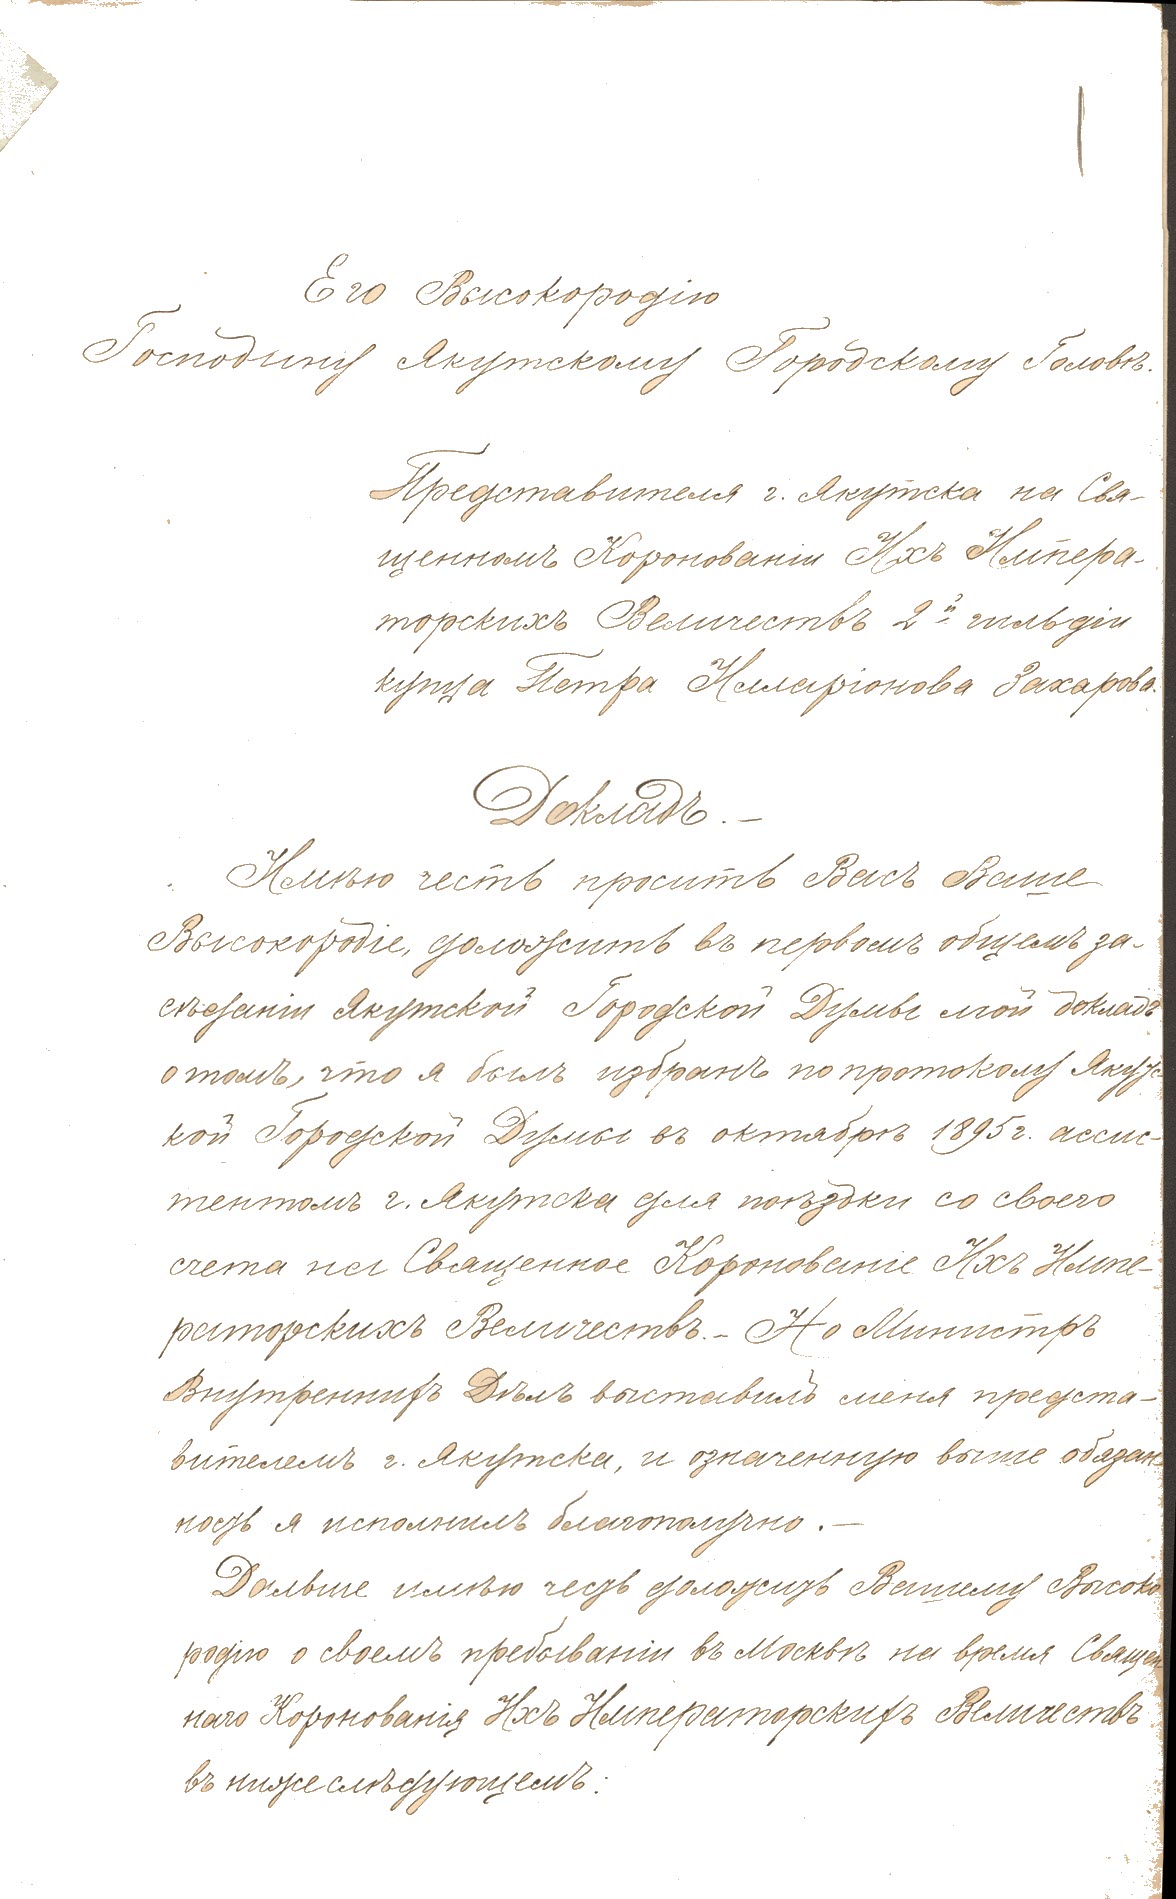 Его Высокородію
Господину Якутскому Городскому Головѣ.
Представителя г. Якутска на Свя-
щенномъ Коронованіи Ихъ Импера-
торскихъ Величествъ 2й гильдіи
купца Петра Иларіонова Захарова.
Докладъ.—
Имѣю честь просить Васъ Ваше
Высокородіе, доложить въ первомъ общемъ за-
сѣданіи Якутской Городской Думы мой докладъ
о томъ, что я былъ избранъ по протоколу Якутс-
кой Городской Думы въ октябрѣ 1895 г. ассис-
тентомъ г. Якутска для поѣздки со своего
счета на Священное Коронованіе Ихъ Импе-
раторскихъ Величествъ.— Но Министръ
Внутреннихъ Дѣлъ выставилъ меня предста-
вителемъ г. Якутска, и означенную выше обязан-
ность я исполнилъ благополучно.—
Дальше имѣю честь доложить Вашему Высоко
родію о своемъ пребываніи въ Москвѣ на время Священ-
наго Коронованія Ихъ Императорскихъ Величествъ
въ нижеслѣдующемъ: